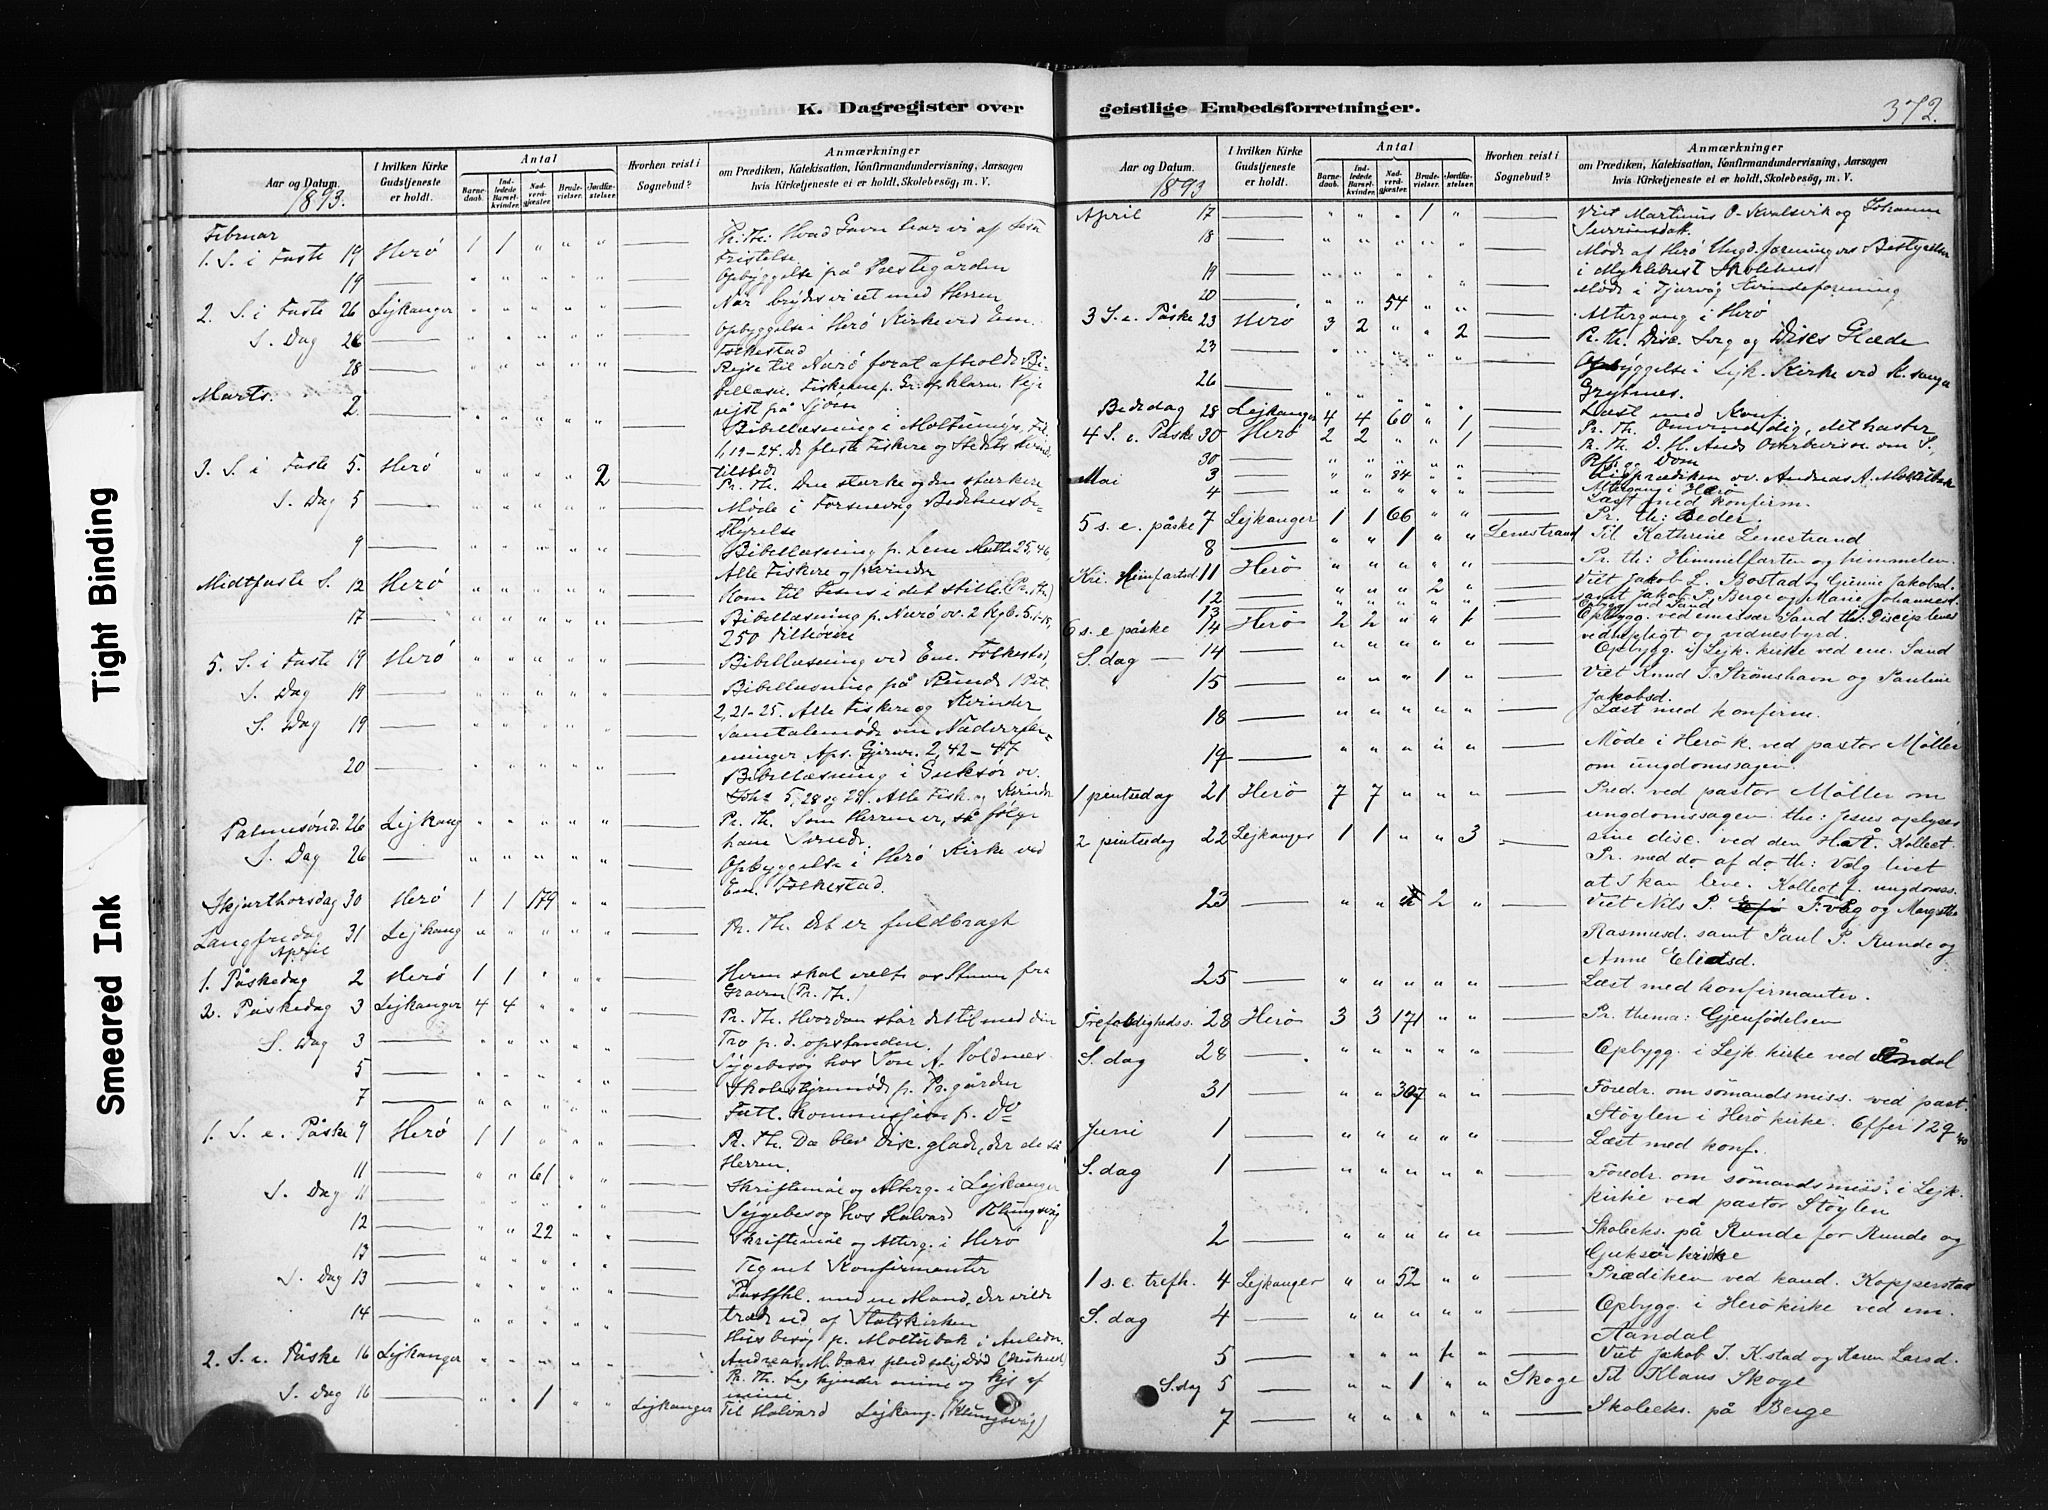 K. Dagregister over geistlige Embedsforretninger.
372.
Tight Binding
Smeared Ink
Aar og Datum.
1893.
I hvilken Kirke Gudstjeneste er holdt.
Antal
Barnedaab.
Indledede Barselkvinder.
Nadverdgjester.
Brudevielser.
Jordfæstelser.
Hvorhen reist i Sognebud?
Anmærkninger
om Prædiken, Katekisation, Konfirmandundervisning, Aarsagen
hvis Kirketjeneste ei er holdt, Skolebesøg, m. V.
Februar
1. S. i Faste 19 Herö 1 1 " " " Pr. Th: Hvad Gavn har vi af Jesu
Fristelse
19 " " " " " Opbyggelse på Prestegården
2. S. i Faste 26 Lejkanger " " " " " Når brydes vi ret med Herren
S. Dag 26 " " " " " Opbyggelse i Herö Kirke ved Em.
Folkestad
28 " " " " " Rejse til Nærö forat afholde Bi-
bellæsn.
Marts. 2
rejst på Sjöen
Bibellæsning i
1, 19-24. De fleste Fiskere og Stedets Kvinder
tilstede
3. S. i Faste 5. Herö " " " " 2 Pr. Th. Den stærke og den stærkere
S. Dag 5 " " " " " Möde i Fosnavåg Bedehusbe-
styrelse
9 " " " " " Bibellæsning p. Matth 25, 46,
Alle Fiskere og Kvinder
Midtfaste S. 12 Herö " " " " " Kom til Jesus i det stille (Pr. Th)
17 " " " " " Bibellæsning p. Nærö ov. 2 Kgb. 5, 1-15,
250 tilhörere
5. S. i Faste 19 Herö " " " " " Bibellæsning ved Em. Folkestad
S. Dag 19 " " " " " Bibellæsning på Runde 1 Pet.
2, 21-25. Alle Fiskere og Kvinder
S. Dag 19 " " " " " Samtalemöde om
Aps. Gjern. 2, 42-47
20 " " " " " Bibellæsning i Guksör ov.
Joh 5, 28 og 29. Alle Fisk. og Kvinder
Palmesönd. 26 Lejkang " " " " " Pr. Th. Som Herren er, så fölge
ham
S. Dag 26 " " " " " Opbyggelse i Herö Kirke ved
Em. Folkestad.
Skjærthorsdag 30 Herö 1 1 179 " "
Langfredag 31 Lejkang " " " " " Pr. Th. Det er fuldbragt
April
1. Påskedag 2 Herö 1 1 " " " Hvem skal vælte os Stenen fra
Graven (Pr. Th.)
2. Påskedag 3 Lejkanger 4 4 " " " Pr. Th. Hvordan står det til med din
Tro p. d. opstanden.
S. Dag 3 " " " " " Sygebesög hos A. Voldnes
5 " " " " " Skolestyremöde p. Pr. gården
7 " " " " " Fatt. Kommission p. Do
1. S. e. Påske 9 Herö 1 1 " " " Pr. Th. Da blev Disc. glade, der de så
Herren.
11 " " 61 " " Skriftemål og Alterg. i Lejkanger
S. Dag 11 " " " " " Sygebesög hos Halvard Klungsvig
12 " " 22 " " Skriftemål og Alterg. i Herö
13 " " " " " Tegnet Konfirmanter
S. Dag 13 " " " " " med en Mand, der vilde
træde ud af Statskirken
14 " " " " " Husbesög p. Moltubak i Anledn.
Andreas M.baks pludselig Död (druknet)
2. S. e. Påske 16 Lejkanger " " " " " Pr. Th. Jeg kjender mine og kjs af
mine
S. Dag 16 " " 1 " " Lejkanger Til Halvard Lejkang. (Klungsvig)
Aar og Datum.
1893
I hvilken Kirke Gudstjeneste er holdt.
Antal
Barnedaab.
Indledede Barselkvinder.
Nadverdgjester.
Brudevielser.
Jordfæstelser.
Hvorhen reist i Sognebud?
Anmærkninger
om Prædiken, Katekisation, Konfirmandundervisning, Aarsagen
hvis Kirketjeneste ei er holdt, Skolebesøg, m. V.
April 17 " " " 1 " Viet Martinus O. Kvalsvik og Johanne
18 " " " " " Möde af Herö Ungd. foreningers Bestyrelse
i Myklebust Skolehus
19 " " " " " Möde i Tjørvåg Kvindeforening
20 " " 54 " " Altergang i Herö
3 S. e. Påske 23 Herö 3 2 " " 2 Pr. Th. Disc. Sorg og Discs Glæde
23 " " " " " Opbyggelse i Lejk. Kirke ved
Grytnes.
26 " " " " " Læst med Konf.
Bededag 28 Lejkanger 4 4 60 " 1 Pr. Th. Omvend dig, det haster
4 S. e. Påske 30 Herö 2 2 " " 1 Pr. Th. D. H. Ånds Overbevisn. om S.,
Rff. og Dom
30 " " " " " Ligprædiken ov. Andreas A. Moltubak
Mai 3 " " 34 " " Altergang i Herö
4 " " " " " Læst med konfirm.
5 s. e. påske 7 Lejkanger 1 1 66 " " Pr. th: Beder.
8 " " 1 " " Lenestrand Til Kathrine Lenestrand
Kri. Himfartsd 11 Herö " " " " " Pr. th: Himmelfarten og himmelen
12 " " " 2 " Viet Jakob L. Bostad og Gunnie Jakobsd.
samt Jakob P. Berge og Marie Johannesd.
13 " " " " " Opbygg ved Sand
6 s. e påske 14 Herö 2 2 " " 1 Opbygg. ved emissær Sand th: Disciplenes
vidnepligt og vidnesbyrd.
S. dag 14 " " " " " Opbygg. i Lejk. kirke ved em. Sand
15 " " " 1 " Viet Knud J. Strömshavn og Pauline
Jakobsd.
18 " " " " " Læst med konfirm.
19 " " " " " Möde i Herö k. ved pastor Möller
om ungdomssagen.
1 pintsedag 21 Herö 7 7 " " " Præd. ved pastor Möller om
ungdomssagen. th: Jesus opbyser
2 pintsedag 22 Lejkanger 1 1 " " 3 sine disc. ved den H. Å. Kollect.
Pr. med do. af do. th: Vælg livet
at I kan leve. Kollect f. ungdomss.
23 " " " 2 " Viet Nils P. Tvåg og Margrethe
Rasmusd. samt Paul P. Runde og
Anne Eliasd.
25 " " " " " Læst med konfirmanter.
Trefoldighedss. 28 Herö 3 3 171 " " Pr. thema: Gjenfödelsen
S. dag 28 " " " " " Opbygg. i Lejk kirke ved Åndal
31 " " 307 " " Foredr. om sömandsmiss. ved past.
Stöylen i Herö kirke. Offer 129 40
Juni 1 " " " " " Læst med konf.
S. dag 1 " " " " " Foredr. om sömandsmiss. i Lejk.
kirke ved pastor Stöylen
2 " " " " " Skoleeks. på Runde for Runde og
Guksör kirke
1 s. e. trefh. 4 Lejkanger " " 52 " " Prædiken ved kand. Kopperstad
S. dag 4 " " " " " Opbygg. i Herökirke ved em.
Aandal
5 " " " 1 " Viet Jakob J. K.stad og Karen Larsd.
S. dag 5 " " 1 " " Skoge Til Klaus Skoge
7 " " " " " Skoleeks. på Berge